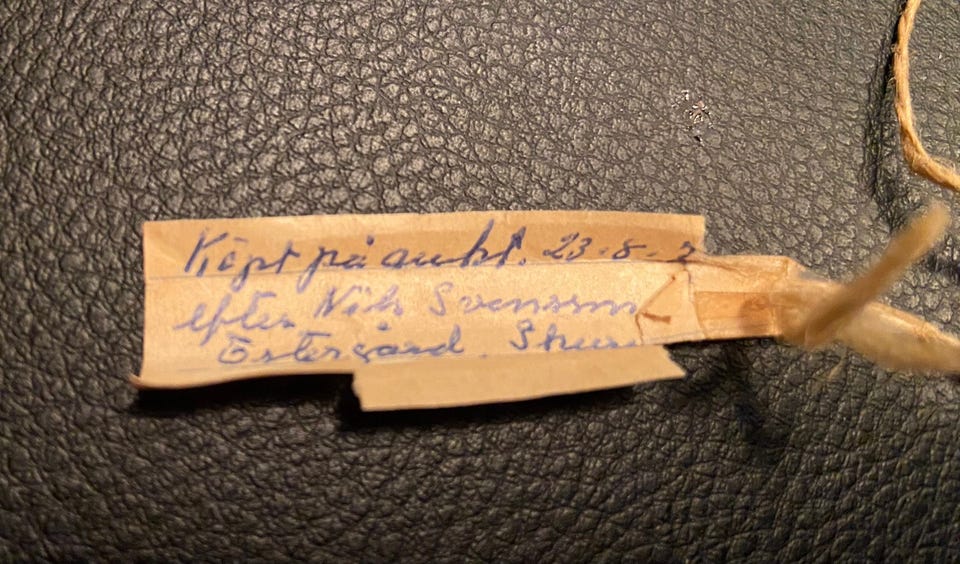 Köpt på aukt. 23-8-
efter Nils Svensson
Östergård.